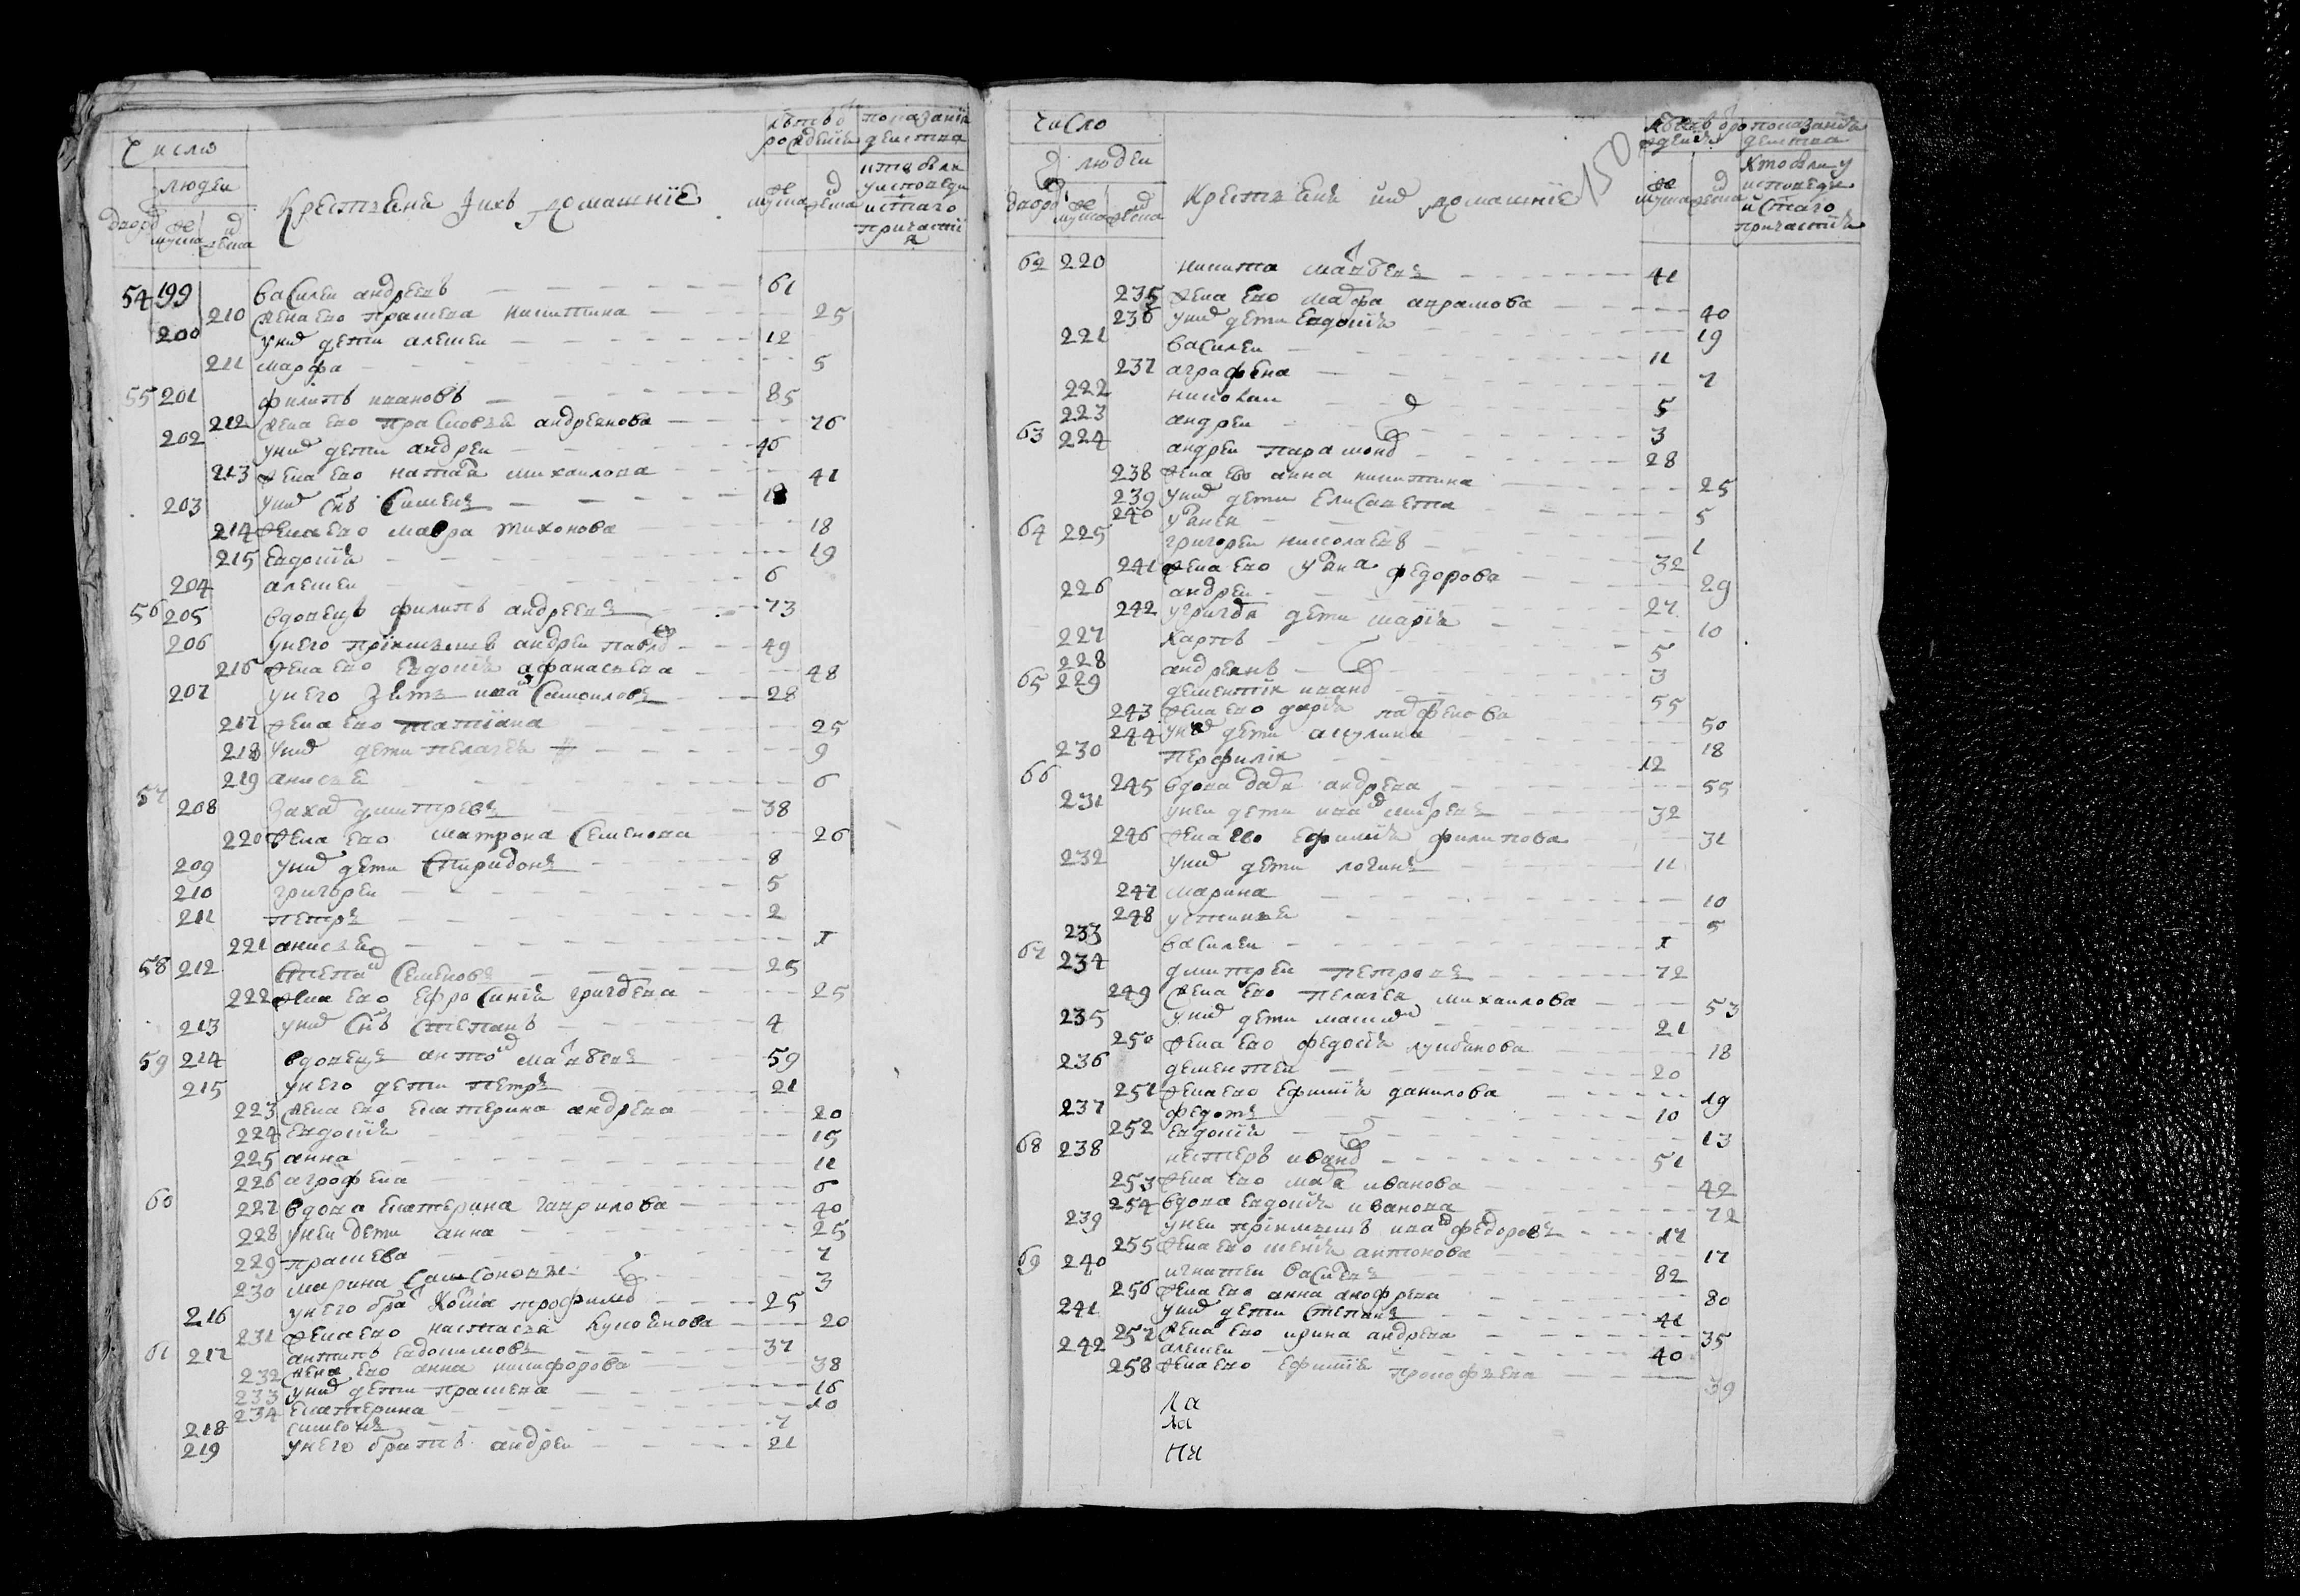 число
людеи
дворо мужеска женска
Крестьяне ихъ домашние
лѣтъ от рождения
показание деиства
мужеска женска
кто былъ у исповеди и стаго причастия
54 199 василеи андреевъ 61
210 жена ево прасковя никитина 25
200 у них дети алексеи 12
211 марфа 5
55 201 филипъ ивановъ 85
212 жена ево прасковья андреянова 76
202 у них дети андреи 46
213 жена ево наталя михаилова 41
203 у них снъ симеонъ
214 жена ево мавра тихонова 18
215 евдокия 19
204 алексеи 6
56 205 вдовецъ филипъ андреевъ 73
206 у него приимышъ андреи павлов 49
216 жена ево евдокия афанасьева 48
207 у него зять иван самоиловъ 28
217 жена ево татиана 25
218 у них дети пелагея 9
219 анисья 6
57 208 захар дмитревъ 38
220 жена ево матрона семенова 26
209 у них дети спиридонъ 8
210 григореи 5
211 петръ 2
221 анисья 1
58 212 степан семеновъ 25
222 жена ево ефросиния григорева 25
213 у них снъ степанъ 4
59 214 вдовецъ антон матвеевъ 59
215 у него дети петръ 21
223 жена ево екатерина андреева 20
224 евдокия 15
225 анна 11
226 агрофена 6
60 227 вдова екатерина гаврилова 40
228 у неи дети анна 25
229 прасковя 7
230 марина 3
216 у него брат трофимов 25
231 жена ево настасья 20
61 217 антипъ евдокимовъ 37
232 жена ево анна никифорова 38
233 у них дети прасковя 16
234 екатерина 10
218 симеонъ 7
219 у него братъ андреи 21
число
людеи
дворо мужеска женска
Крестьяне их домашние
150
лѣтъ от рождения
показание деиства
мужеска женска
кто были у исповеди и стаго причастия
62 220 никита матвеевъ 41
235 жена ево марфа аврамова 40
236 у них дети евдокия 19
221 василеи 11
237 аграфена 7
222 николаи 5
223 андреи 3
63 224 андреи парамонов 28
238 жена ево анна никитина 25
239 у них дети елисавета 5
240 уляна 1
64 225 григореи николаевъ 32
241 жена ево уляна федорова 29
226 андреи 27
242 у григоря дети мария 10
227 карпъ 5
228 андреянъ 3
65 229 дементии иванов 55
243 жена ево дария парфенова 50
244 у них дети акулина 18
230 перфилии 12
66 245 вдова даря андреева 55
231 у неи дети иван 32
246 жена ево ефимия филипова 31
232 у них дети логинъ 11
247 марина 10
248 устинья 5
233 василеи 1
67 234 дмитреи петровъ 72
249 жена ево пелагея михаилова 53
235 у них дети максим 21
250 жена ево федосия 18
236 дементеи 20
251 жена ево ефимия данилова 19
237 федотъ 10
252 евдокия 13
68 238 нестеръ иванов 51
253 жена ево иванова 42
254 вдова евдокия иванова 72
239 у неи приимышъ иван федоровъ 17
255 жена ево ксения антонова 17
69 240 игнатеи василевъ 82
256 жена ево анна анофрева 80
241 у них дети степанъ 41
257 жена ево ирина андреева 35
242 алексеи 40
258 жена ево ефимия прокофьева 39